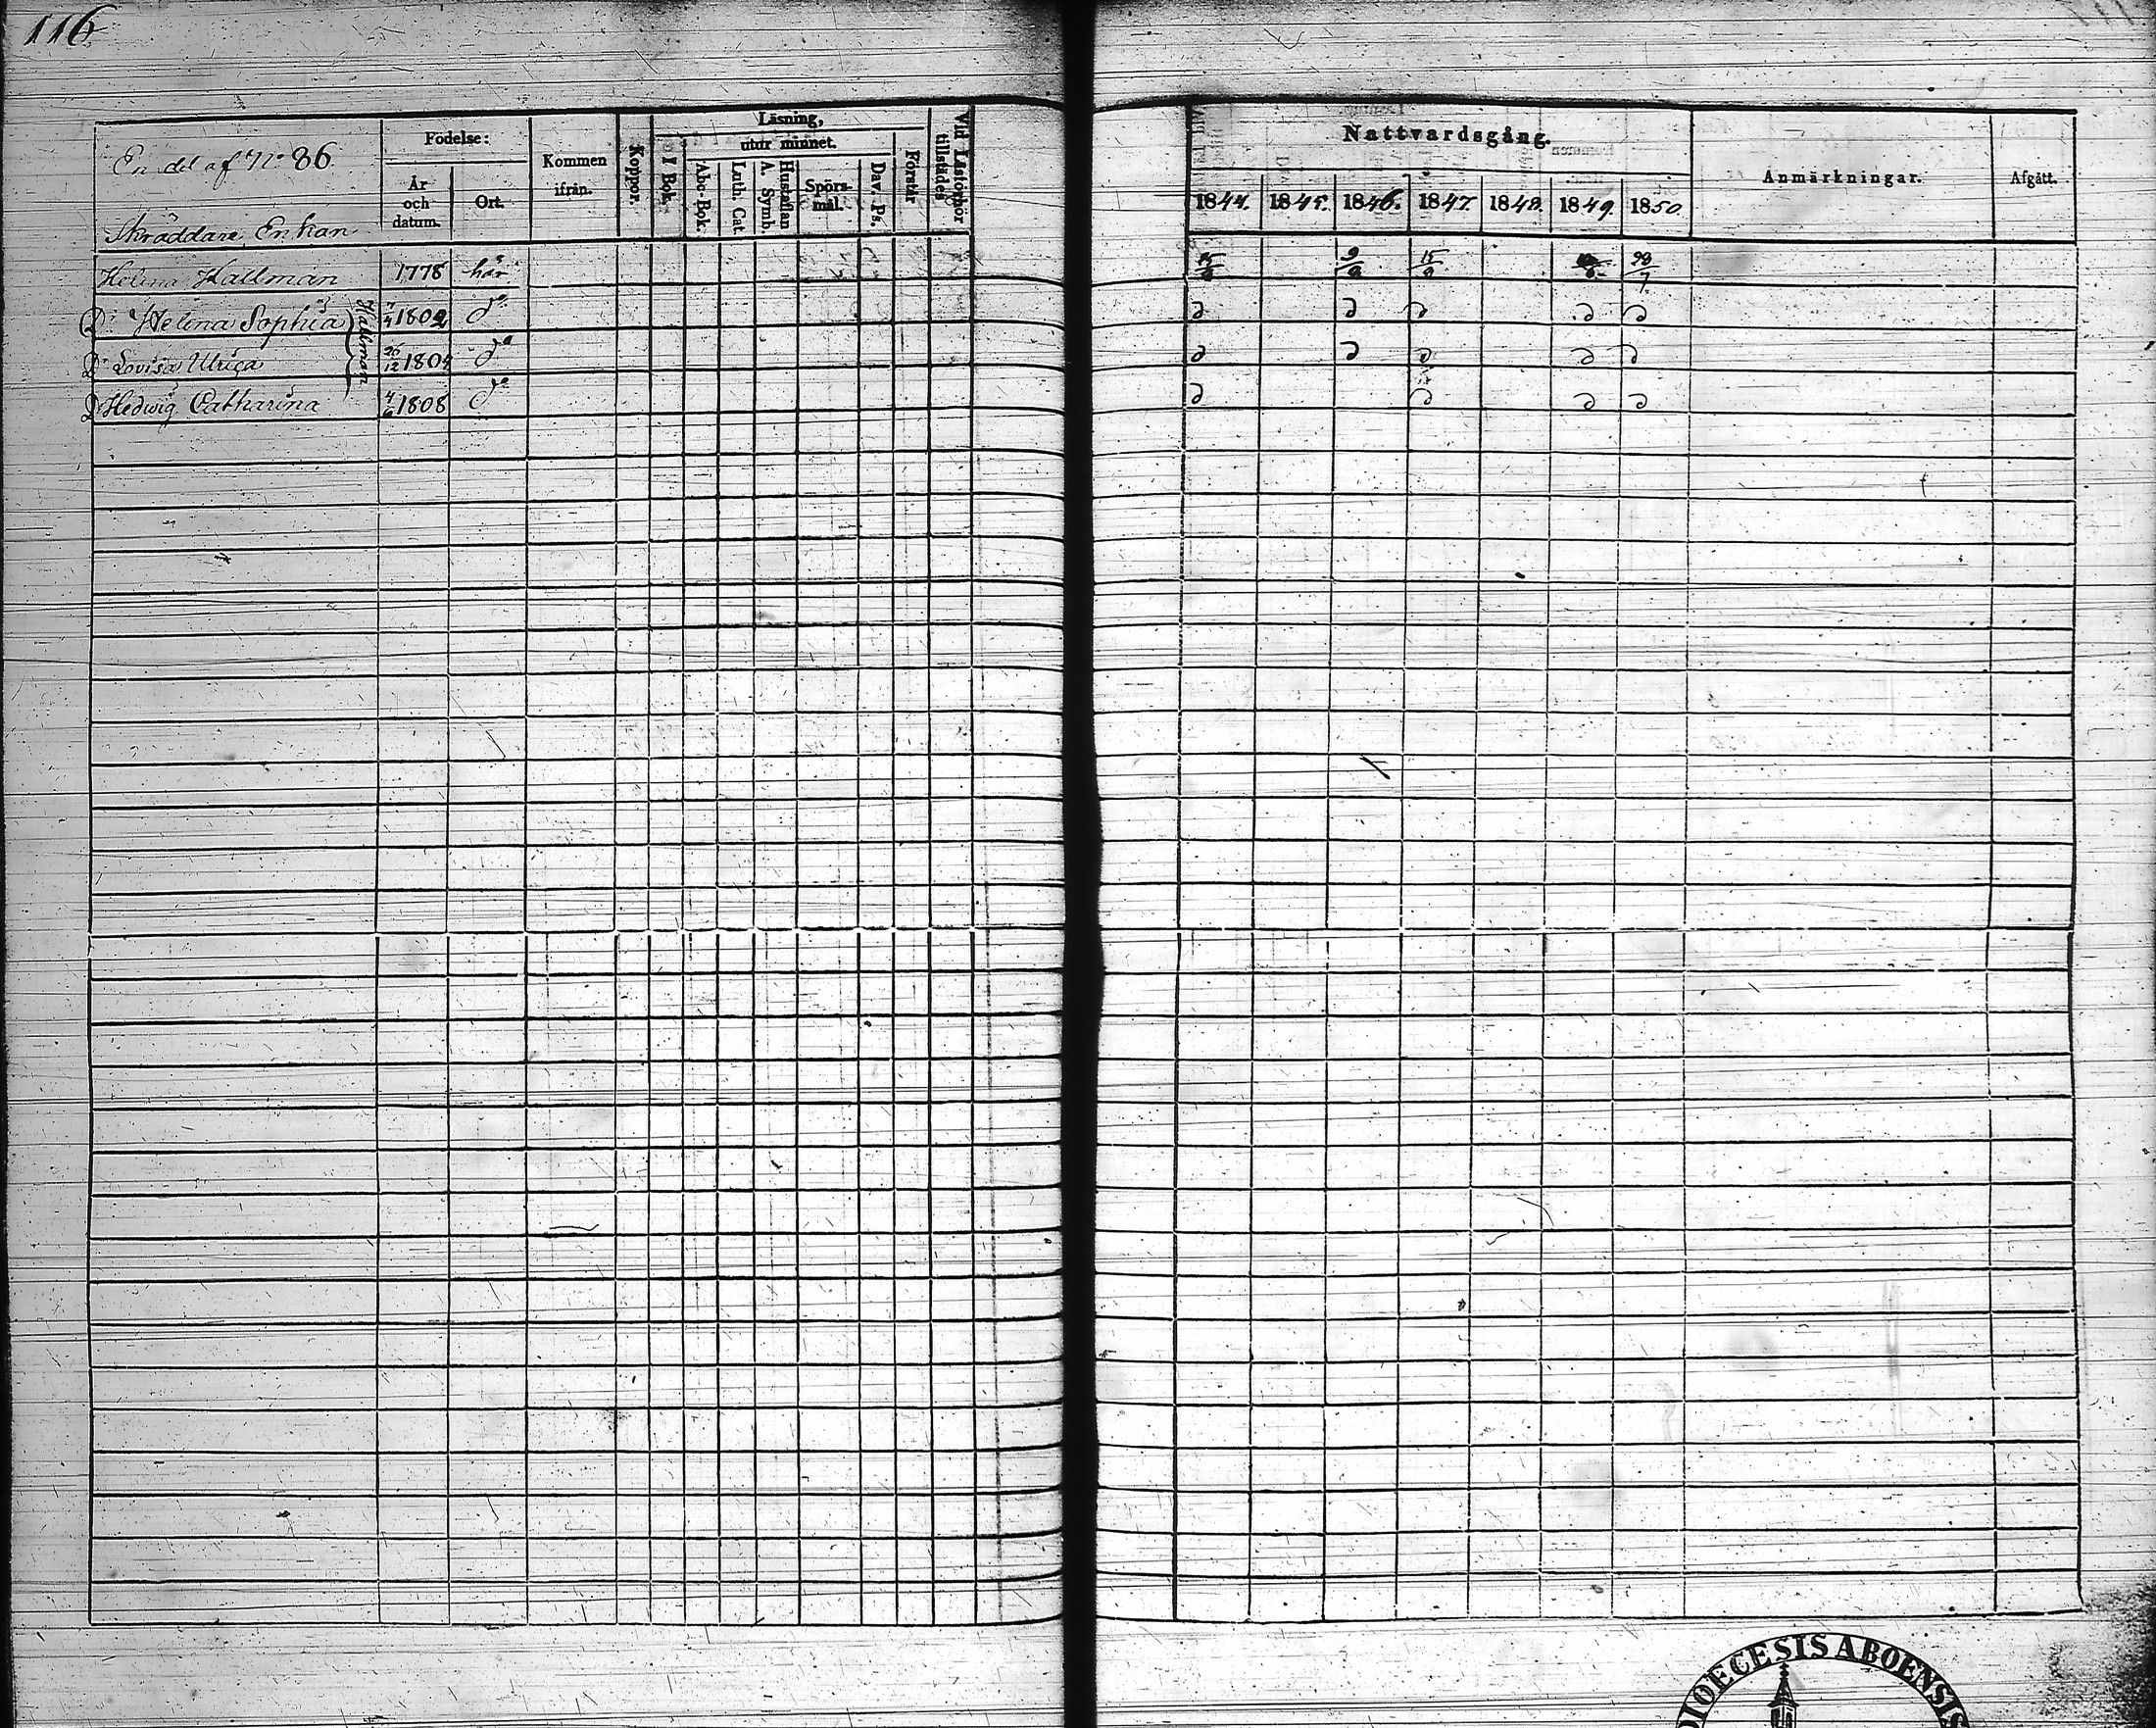 116
En del af No 86
Skräddare Enkan
Födelse:
År
och
datum.
Ort.
Kommen
ifrån.
Koppor.
Läsning,
I Bok.
utur minnet.
Abc-Bok.
Luth. Cat.
A. Symb.
Hustaflan
Spörs-
mål.
Dav. Ps.
Förstår
Vid Läsförhör
tillstädes
Nattvardsgång.
1844. 1845. 1846. 1847. 1848. 1849. 1850.
Anmärkningar.
Afgått.
Helena Hallman 1778 här 9/8 15/8 28/7
D: Helena Sophia 1802 do
D: Lovisa Ulrica 26/12 1804 do
D: Hedwig Catharina 4/6 1808 do
Hallman
DIOECESIS ABOENSIS